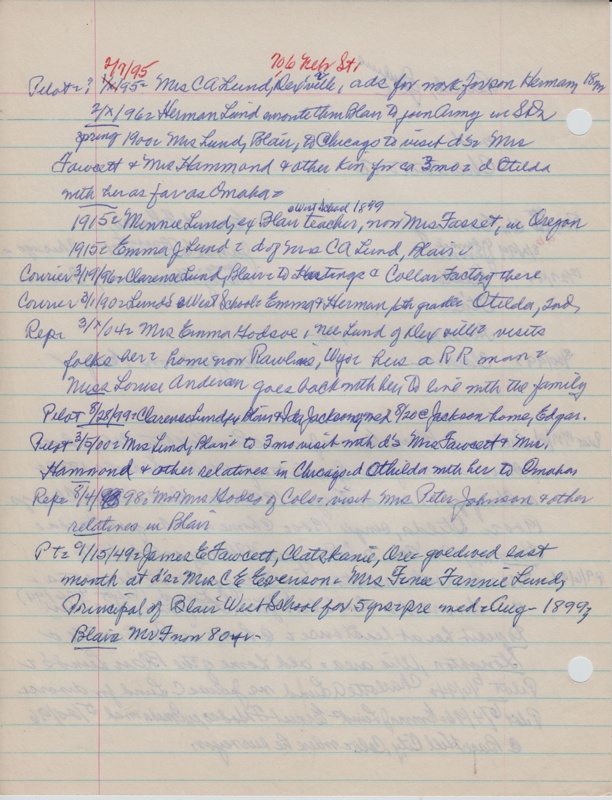 2/7/95 706 Nebr St,
Pilot = ? 1/x/95 = Mrs C A Lund, Dex'ville, ads for work for son Herman, 18 yr
2/x/96 = Herman Lund enroute thru Blair to join Army in S Dk
Spring 1900 = Mrs Lund, Blair, to Chicago to visit d's = Mrs
Fawcett & Mrs Hammond & other kin for ca 3 mo = d Otilda
with her as far as Omaha =
West School 1899
1915 = Minnie Lund, ex Blair teacher, now Mrs Fasset, in Oregon
1915 = Emma J Lund = d of Mrs C A Lund, Blair =
Courier 3/19/96 = Clarence Lund, Blair = to Hastings = Collar Factory there
Courier 2/1/90 = Lunds @ West School = Emma & Herman, 6th grade = Otilda, 2nd,
Rep = 3/x/04 = Mrs Emma Hodson, nee Lund of Dex'ville = visits
folks here = home now Rawlins, Wyo = hus a R R man =
Miss Louise Andersen goes back with her to live with the family
Pilot 8/28/99 = Clarence Lund, ex Blair & Ida Jackson, wed 8/20 @ Jackson home, Edgar.
Pilot 3/5/00 = Mrs Lund, Blair = to 3 mo visit with d's Mrs Fawcett & Mrs,
Hammond & other relatives in Chicago = d Othilda with her to Omaha =
Rep = 8/4/98 = Mr & Mrs of Colo = visit Mrs Peter Johnson & other
relatives in Blair
Pt = 9/15/49 = James E Fawcett, Clatskanie, Ore = died east
month at d's = Mrs C E Evenson = Mrs F nee Fannie Lund,
Principal of Blair West School for 5 yrs = pre med = Aug - 1899,
Blair = Mr F now 80 yr -